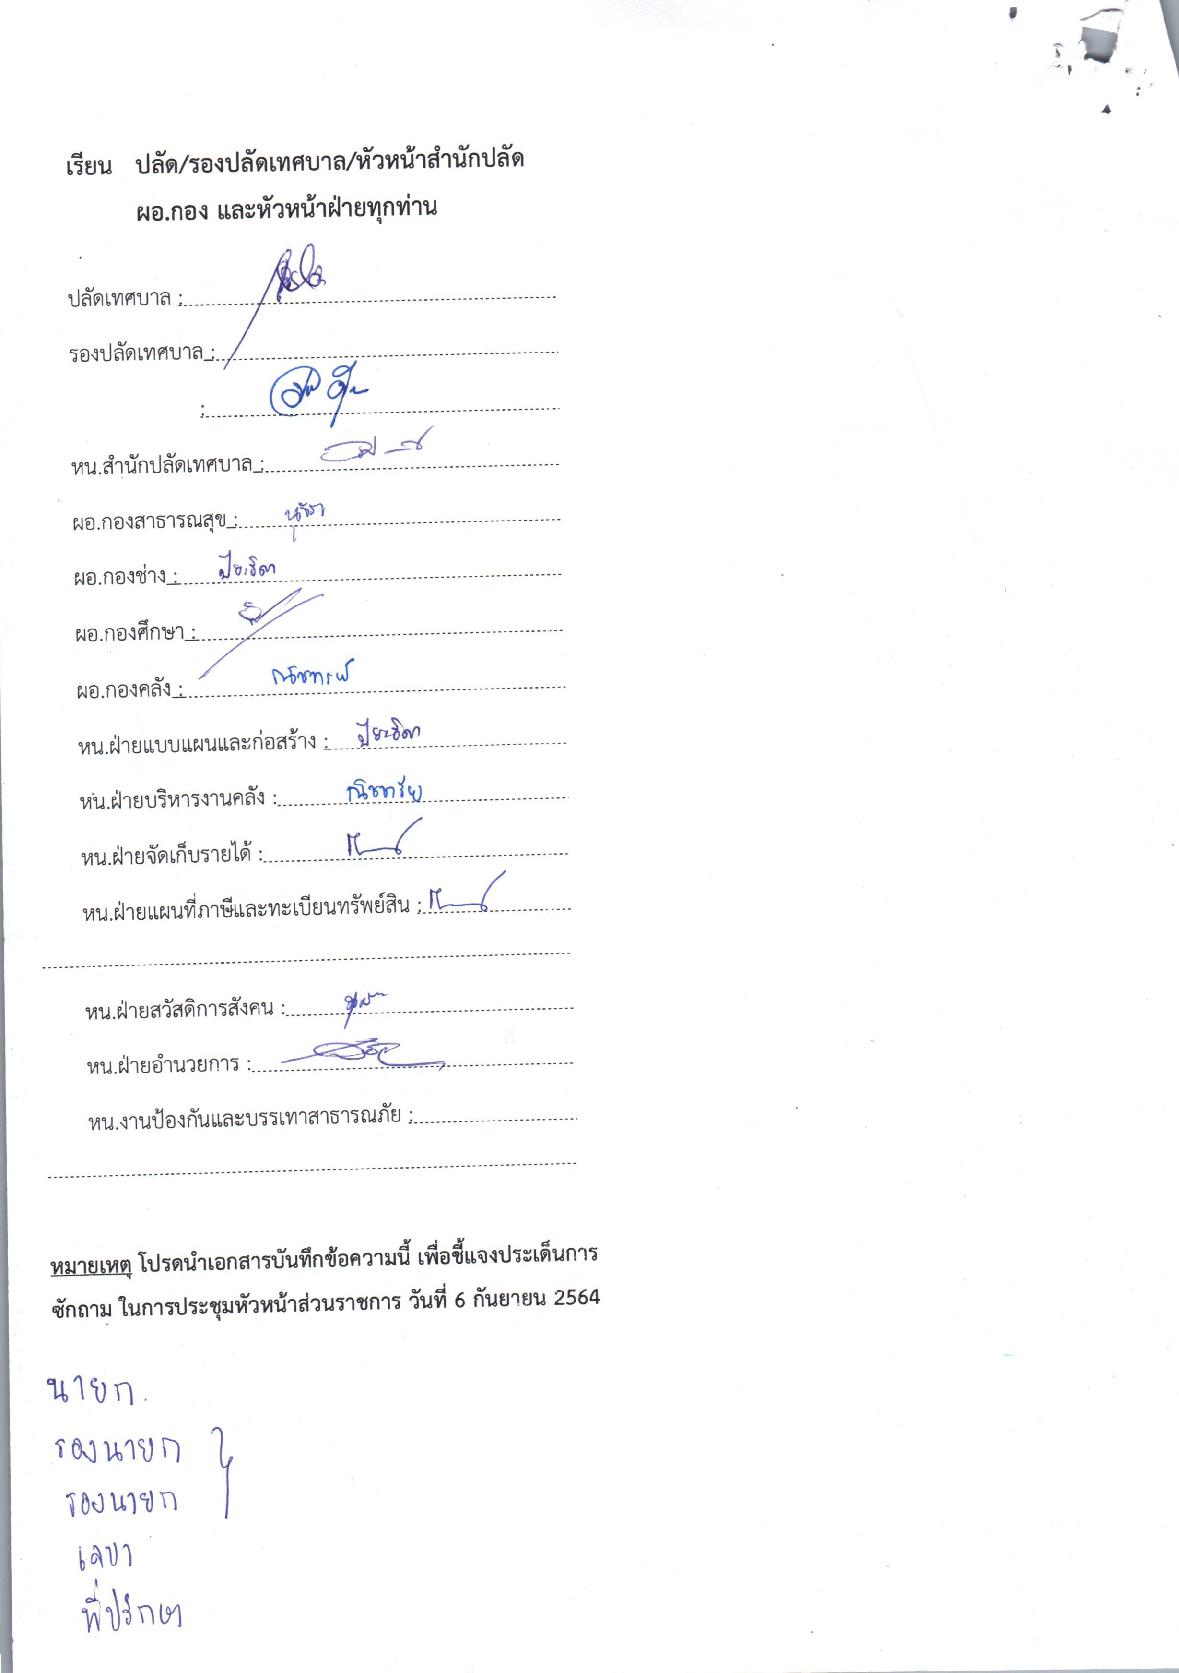 เรียน ปลัด/รองปลัดเทศบาล/หัวหน้าสำนักปลัด
ผอ.กอง และหัวหน้าฝ่ายทุกท่าน
ปลัดเทศบาล :
รองปลัดเทศบาล :
:
หน.สำนักปลัดเทศบาล :
ผอ.กองสาธารณสุข :
ผอ.กองช่าง : ปิยะธิดา
ผอ.กองศึกษา :
ผอ.กองคลัง :
หน.ฝ่ายแบบแผนและก่อสร้าง : ปิยะธิดา
หน.ฝ่ายบริหารงานคลัง :
หน.ฝ่ายจัดเก็บรายได้ :
หน.ฝ่ายแผนที่ภาษีและทะเบียนทรัพย์สิน :
หน.ฝ่ายสวัสดิการสังคน :
หน.ฝ่ายอำนวยการ :
หน.งานป้องกันและบรรเทาสาธารณภัย :
หมายเหตุ โปรดนำเอกสารบันทึกข้อความนี้ เพื่อชี้แจงประเด็นการ
ซักถาม ในการประชุมหัวหน้าส่วนราชการ วันที่ 6 กันยายน 2564
นายก.
รองนายก
รองนายก
เลขา
ที่ปรึกษา